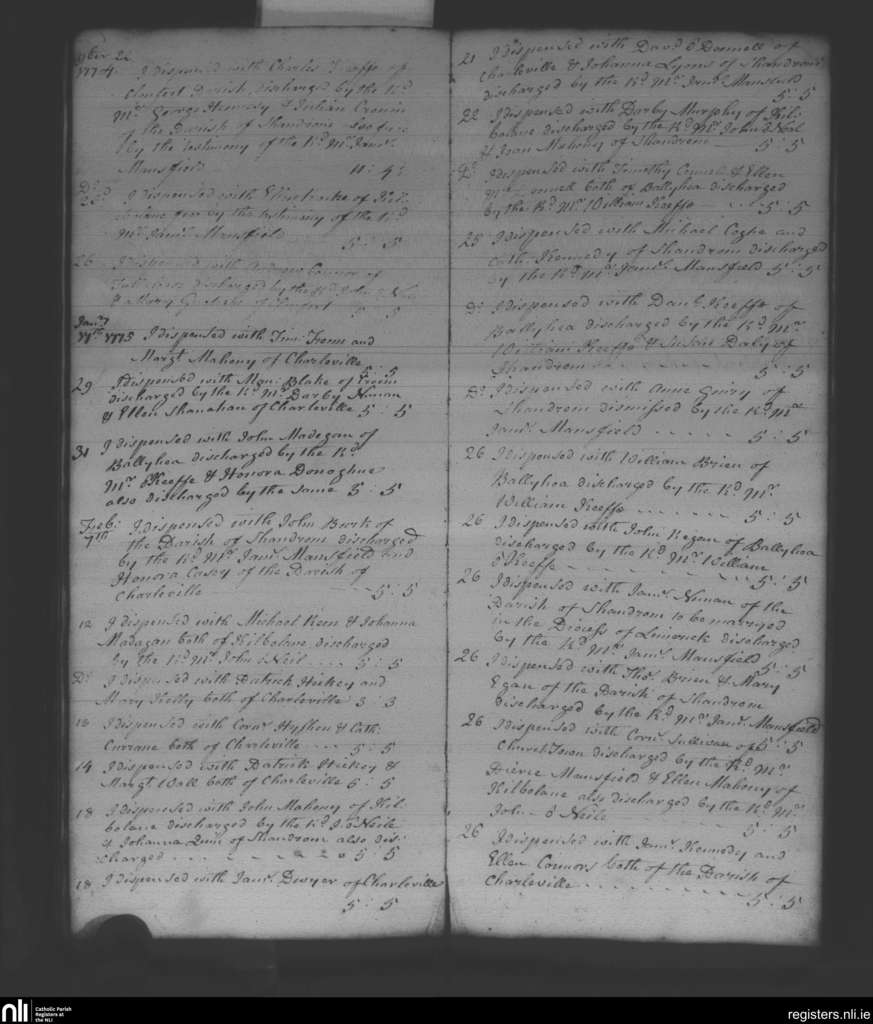 9ber 22
1774. I dispensed with Charles Keeffe of
Parish discharged by the Rd
Mr. George Hennesy & Julian Cronin
of the Parish of Shandrom
by the testimony of the Rd Mr. Jams.
Mansfield
Do I dispensed with of Kil-
bolane free by the testimony of the Rd
Mr. Jams. Mansfield
5 : 5
26 I dispensed with Andrew Connor of
discharged by the Rd John o Neil
Janry
1775 I dispensed with Tim: and
Margt. Mahony of Charleville
5 : 5
29 I dispensed with Blake of
discharged by the Rd Mr. Darby Nunan
& Ellen Shanahan of Charleville 5 : 5
31 I dispensed with John Madegan of
Ballyhea discharged by the Rd
Mr. o Keeffe & Honora Donoghue
also discharged by the same 5 : 5
Feb:
7th I dispensed with John Burk of
the Parish of Shandrom discharged
by the Rd Mr. Jams. Mansfield and
Honora Casey of the Parish of
Charleville 5 : 5
12 I dispensed with Michael Keen & Johanna
Madagan both of Kilbolane discharged
by the Rd Mr. John o Neil .... 5 : 5
Do I dispensed with Patrick Hickey and
Mary Kelly both of Charleville 3 : 3
I dispensed with Corns. & Cath:
Currane both of Charleville 5 : 5
14 I dispensed with Patrick Hickey &
Margt. Wall both of Charleville 5 : 5
18 I dispensed with John Mahony of Kil-
bolane discharged by the Rd J. o Neile
& Johanna Quin of Shandrom also dis-
charged 5 5
18 I dispensed with Jams. Dwyer of Charleville
5 : 5
21 I dispensed with Davd. o Donnell of
Charleville & Johanna Lyons of Shandrom
discharged by the Rd Mr. Jams. Mansfield
5 : 5
22 I dispensed with Darby Murphy of Kil-
bolane discharged by the Rd Mr. John o Neil
& Joan Mahony of Shandrom 5 : 5
Do I dispensed with Timothy Connell & Ellen
both of Ballyhea discharged
by the Rd Mr. William Keeffe 5 : 5
25 I dispensed with Michael Coghe and
Cath: Kennedy of Shandrom discharged
by the Rd Mr. Jams. Mansfield 5 : 5
Do I dispensed with Danl. Keeffe of
Ballyhea discharged by the Rd Mr.
William Keeffe & Susan Daly of
Shandrom 5 : 5
Do I dispensed with Anne Guiry of
Shandrom dismissed by the Rd Mr.
Jams. Mansfield 5 : 5
26 I dispensed with William Brien of
Ballyhea discharged by the Rd Mr.
William Keeffe 5 : 5
26 I dispensed with John Regan of Ballyhea
discharged by the Rd Mr. William
o Keeffe 5 : 5
26 I dispensed with Jams. Nunan of the
Parish of Shandrom to be married
in the Diocess of Limerick discharged
by the Rd Mr. Jams. Mansfield 5 : 5
26 I dispensed with Thos. Brien & Mary
Egan of the Parish of Shandrom
discharged by the Rd Mr. Jams. Mansfield
5 : 5
26 I dispensed with Corns. Sullivan of
Church Town discharged by the Rd Mr.
Pierce Mansfield & Ellen Mahony of
Kilbolane also discharged by the Rd Mr.
Joh. o Neile 5 : 5
26 I dispensed with Jams. Kennedy and
Ellen Connors both of the Parish of
Charleville
5 : 5
nli
Catholic Parish
Registers at
the NLI
registers.nli.ie